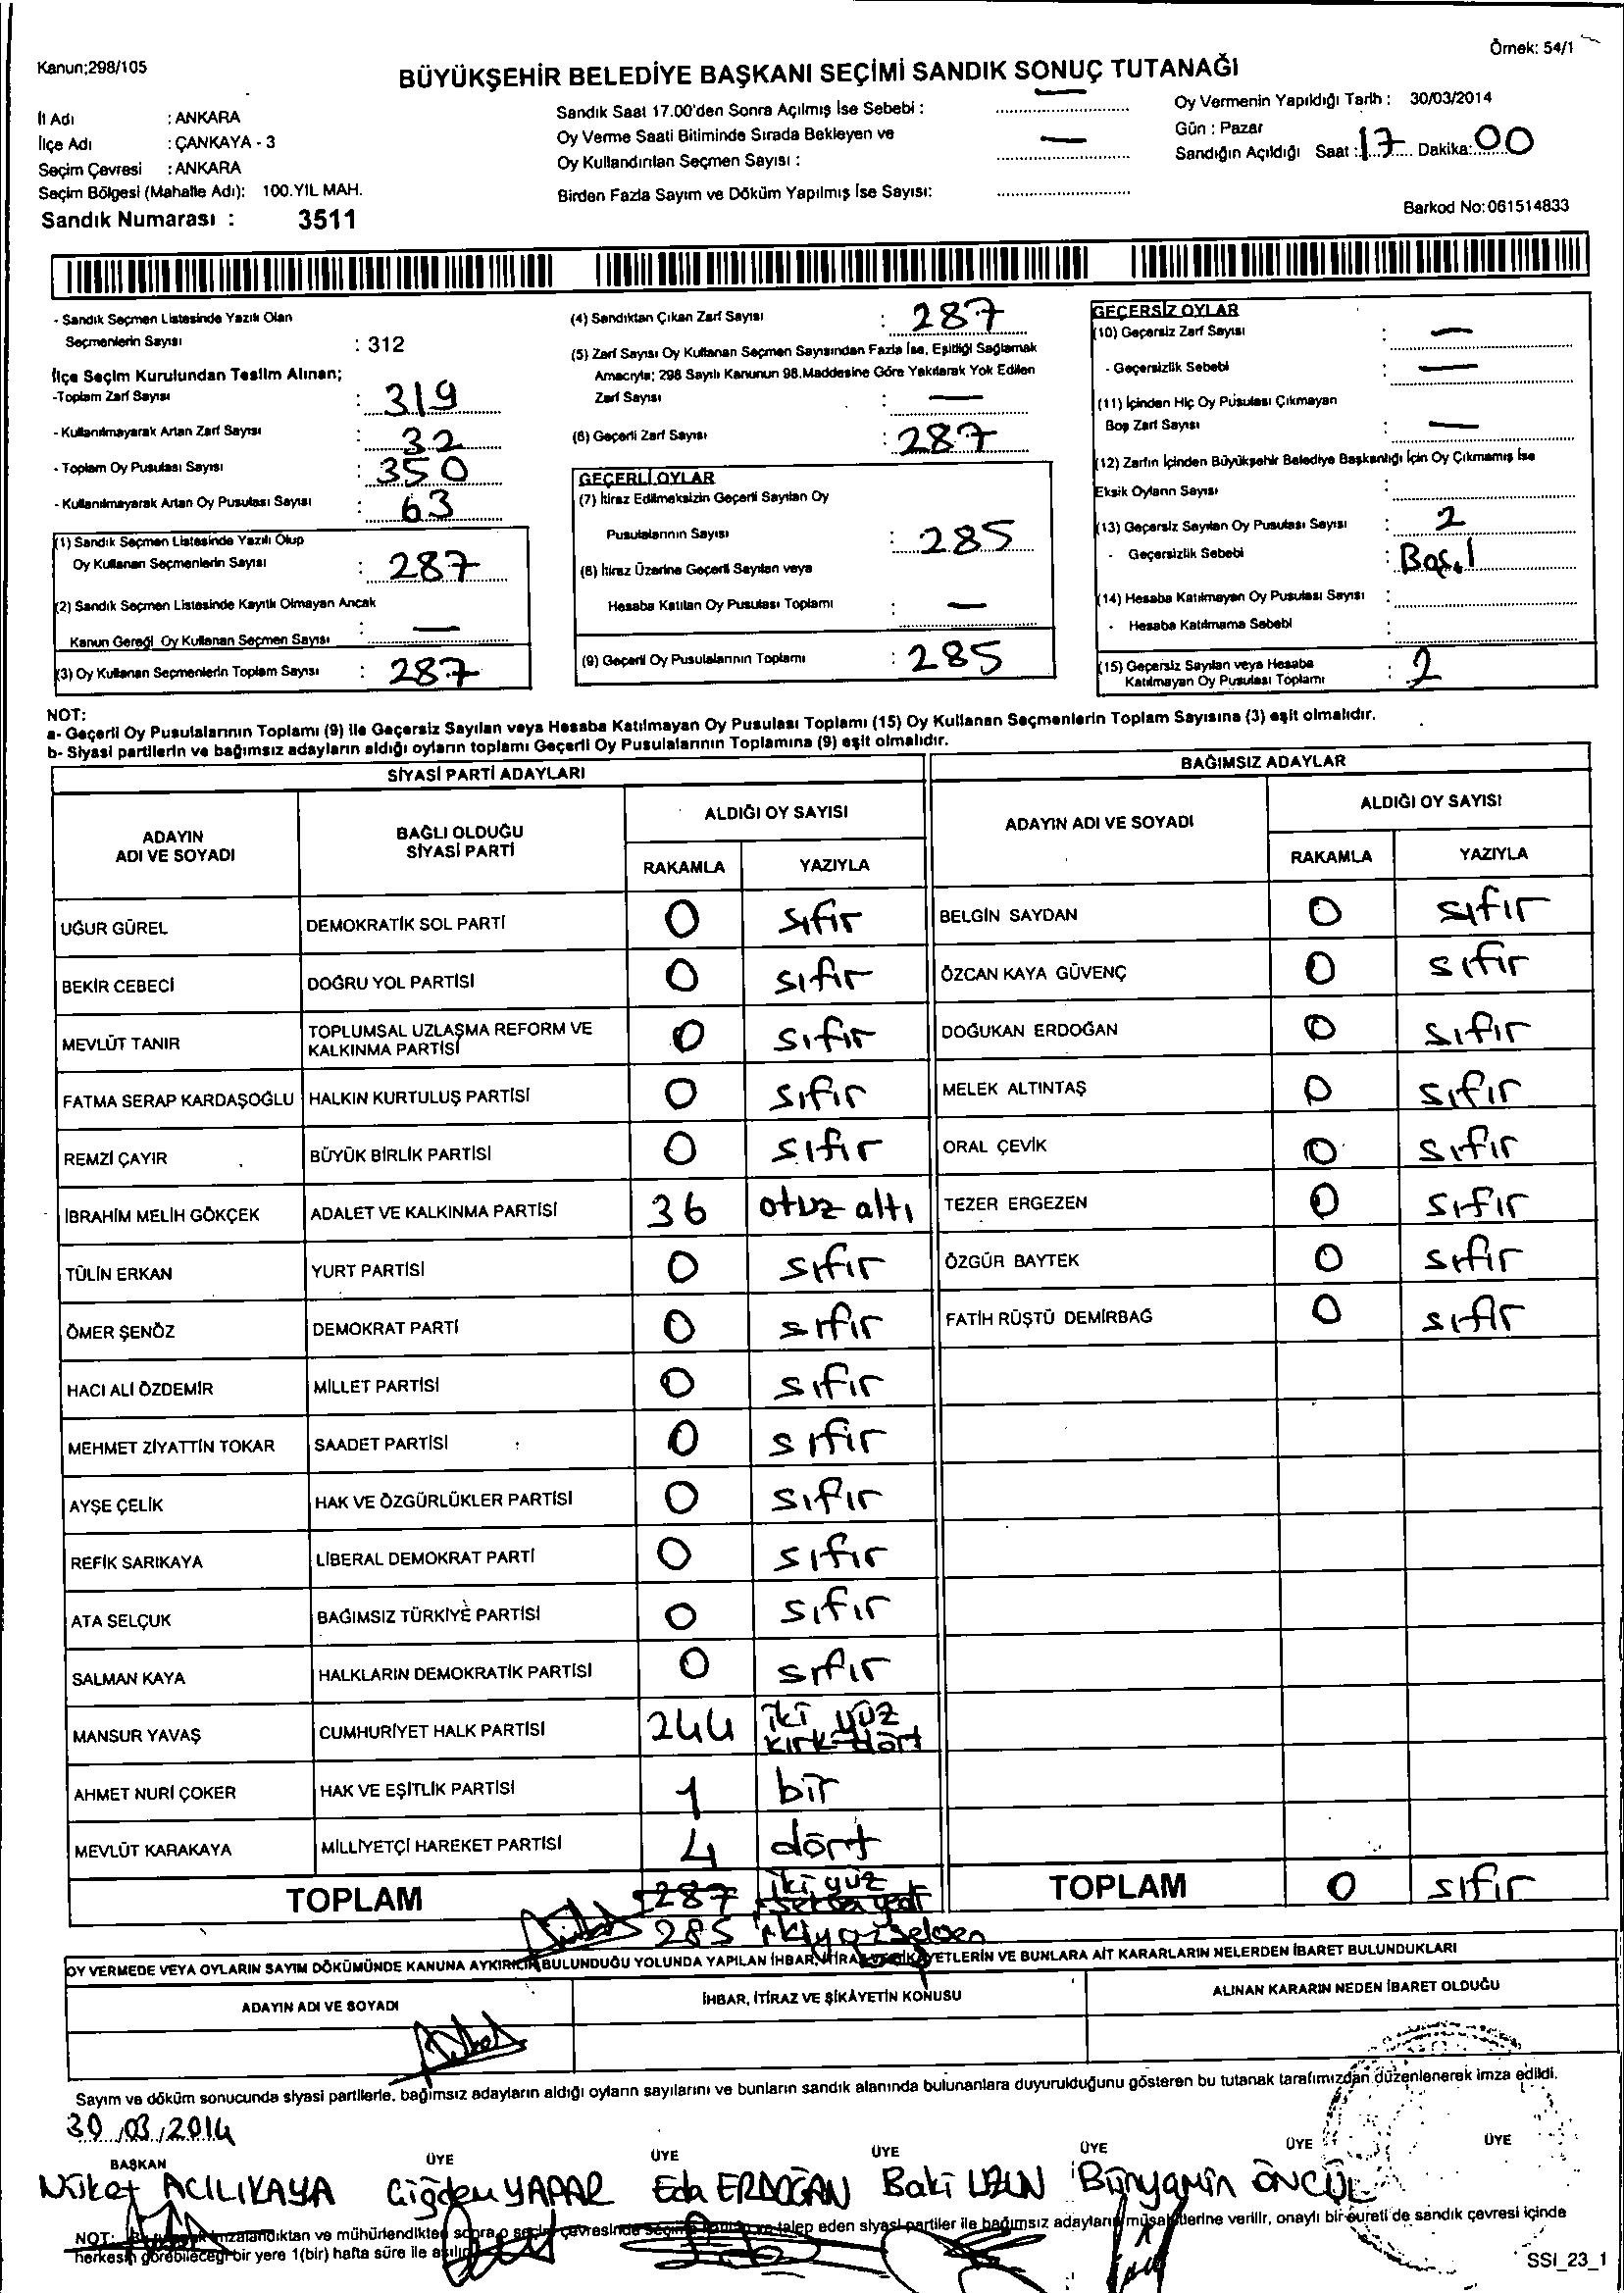 Kanun;298/105
Örnek: 54/1
BÜYÜKŞEHİR BELEDİYE BAŞKANI SEÇİMİ SANDIK SONUÇ TUTANAĞI
İl Adı : ANKARA
İlçe Adı : ÇANKAYA - 3
Seçim Çevresi : ANKARA
Seçim Bölgesi (Mahalle Adı): 100.YIL MAH.
Sandık Numarası : 3511
Sandık Saat 17.00'den Sonra Açılmış İse Sebebi : —
Oy Verme Saati Bitiminde Sırada Bekleyen ve
Oy Kullandırılan Seçmen Sayısı : —
Birden Fazla Sayım ve Döküm Yapılmış İse Sayısı:
Oy Vermenin Yapıldığı Tarih : 30/03/2014
Gün : Pazar
Sandığın Açıldığı Saat : 17 Dakika: 00
Barkod No: 061514833
- Sandık Seçmen Listesinde Yazılı Olan
Seçmenlerin Sayısı : 312
İlçe Seçim Kurulundan Teslim Alınan;
-Toplam Zarf Sayısı : 319
- Kullanılmayarak Artan Zarf Sayısı : 32
- Toplam Oy Pusulası Sayısı : 350
- Kullanılmayarak Artan Oy Pusulası Sayısı : 63
(1) Sandık Seçmen Listesinde Yazılı Olup
Oy Kullanan Seçmenlerin Sayısı : 287
(2) Sandık Seçmen Listesinde Kayıtlı Olmayan Ancak
Kanun Gereği Oy Kullanan Seçmen Sayısı : —
(3) Oy Kullanan Seçmenlerin Toplam Sayısı : 287
(4) Sandıktan Çıkan Zarf Sayısı : 287
(5) Zarf Sayısı Oy Kullanan Seçmen Sayısından Fazla İse, Eşitliği Sağlamak
Amacıyla; 298 Sayılı Kanunun 98.Maddesine Göre Yakılarak Yok Edilen
Zarf Sayısı : —
(6) Geçerli Zarf Sayısı : 287
GEÇERLİ OYLAR
(7) İtiraz Edilmeksizin Geçerli Sayılan Oy
Pusulalarının Sayısı : 285
(8) İtiraz Üzerine Geçerli Sayılan veya
Hesaba Katılan Oy Pusulası Toplamı : —
(9) Geçerli Oy Pusulalarının Toplamı : 285
GEÇERSİZ OYLAR
(10) Geçersiz Zarf Sayısı : —
- Geçersizlik Sebebi : —
(11) İçinden Hiç Oy Pusulası Çıkmayan
Boş Zarf Sayısı : —
(12) Zarfın İçinden Büyükşehir Belediye Başkanlığı İçin Oy Çıkmamış İse
Eksik Oyların Sayısı :
(13) Geçersiz Sayılan Oy Pusulası Sayısı : 2
- Geçersizlik Sebebi :
(14) Hesaba Katılmayan Oy Pusulası Sayısı :
- Hesaba Katılmama Sebebi :
(15) Geçersiz Sayılan veya Hesaba
Katılmayan Oy Pusulası Toplamı : 2
NOT:
a- Geçerli Oy Pusulalarının Toplamı (9) ile Geçersiz Sayılan veya Hesaba Katılmayan Oy Pusulası Toplamı (15) Oy Kullanan Seçmenlerin Toplam Sayısına (3) eşit olmalıdır.
b- Siyasi partilerin ve bağımsız adayların aldığı oyların toplamı Geçerli Oy Pusulalarının Toplamına (9) eşit olmalıdır.
SİYASİ PARTİ ADAYLARI
ADAYIN ADI VE SOYADI
BAĞLI OLDUĞU SİYASİ PARTİ
ALDIĞI OY SAYISI
RAKAMLA YAZIYLA
UĞUR GÜREL DEMOKRATİK SOL PARTİ 0 sıfır
BEKİR CEBECİ DOĞRU YOL PARTİSİ 0 sıfır
MEVLÜT TANIR TOPLUMSAL UZLAŞMA REFORM VE KALKINMA PARTİSİ 0 sıfır
FATMA SERAP KARDAŞOĞLU HALKIN KURTULUŞ PARTİSİ 0 sıfır
REMZİ ÇAYIR BÜYÜK BİRLİK PARTİSİ 0 sıfır
İBRAHİM MELİH GÖKÇEK ADALET VE KALKINMA PARTİSİ 36 otuz altı
TÜLİN ERKAN YURT PARTİSİ 0 sıfır
ÖMER ŞENÖZ DEMOKRAT PARTİ 0 sıfır
HACI ALİ ÖZDEMİR MİLLET PARTİSİ 0 sıfır
MEHMET ZİYATTİN TOKAR SAADET PARTİSİ 0 sıfır
AYŞE ÇELİK HAK VE ÖZGÜRLÜKLER PARTİSİ 0 sıfır
REFİK SARIKAYA LİBERAL DEMOKRAT PARTİ 0 sıfır
ATA SELÇUK BAĞIMSIZ TÜRKİYE PARTİSİ 0 sıfır
SALMAN KAYA HALKLARIN DEMOKRATİK PARTİSİ 0 sıfır
MANSUR YAVAŞ CUMHURİYET HALK PARTİSİ 244 iki yüz kırk dört
AHMET NURİ ÇOKER HAK VE EŞİTLİK PARTİSİ 1 bir
MEVLÜT KARAKAYA MİLLİYETÇİ HAREKET PARTİSİ 4 dört
TOPLAM 287 iki yüz seksen yedi
285 ikiyüzseksen
BAĞIMSIZ ADAYLAR
ADAYIN ADI VE SOYADI
ALDIĞI OY SAYISI
RAKAMLA YAZIYLA
BELGİN SAYDAN 0 sıfır
ÖZCAN KAYA GÜVENÇ 0 sıfır
DOĞUKAN ERDOĞAN 0 sıfır
MELEK ALTINTAŞ 0 sıfır
ORAL ÇEVİK 0 sıfır
TEZER ERGEZEN 0 sıfır
ÖZGÜR BAYTEK 0 sıfır
FATİH RÜŞTÜ DEMİRBAĞ 0 sıfır
TOPLAM 0 sıfır
OY VERMEDE VEYA OYLARIN SAYIM DÖKÜMÜNDE KANUNA AYKIRILIK BULUNDUĞU YOLUNDA YAPILAN İHBAR, İTİRAZ VE ŞİKAYETLERİN VE BUNLARA AİT KARARLARIN NELERDEN İBARET BULUNDUKLARI
ADAYIN ADI VE SOYADI
İHBAR, İTİRAZ VE ŞİKÂYETİN KONUSU
ALINAN KARARIN NEDEN İBARET OLDUĞU
Sayım ve döküm sonucunda siyasi partilerle, bağımsız adayların aldığı oyların sayılarını ve bunların sandık alanında bulunanlara duyurulduğunu gösteren bu tutanak tarafımızdan düzenlenerek imza edildi.
30/03/2014
BAŞKAN ÜYE ÜYE ÜYE ÜYE ÜYE ÜYE
Nüket ACILIKAYA Çiğdem YAPAR Eda ERDOĞAN Baki UZUN Bünyamin ÖNCÜL
NOT: Bu tutanak imzalandıktan ve mühürlendikten sonra o seçim çevresinde seçime katılan ve talep eden siyasi partiler ile bağımsız adayların müşahitlerine verilir, onaylı bir sureti de sandık çevresi içinde
herkesin görebileceği bir yere 1(bir) hafta süre ile asılır.
SSI_23_1